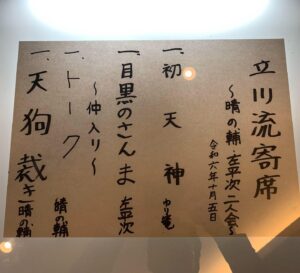 立川流寄席
〜晴の輔・左平次二人会〜
令和六年十月五日
一、初天神 かり竜
一、目黒のさんま 左平次
〜仲入り〜
一、トーク 晴の輔
一、天狗裁き 晴の輔